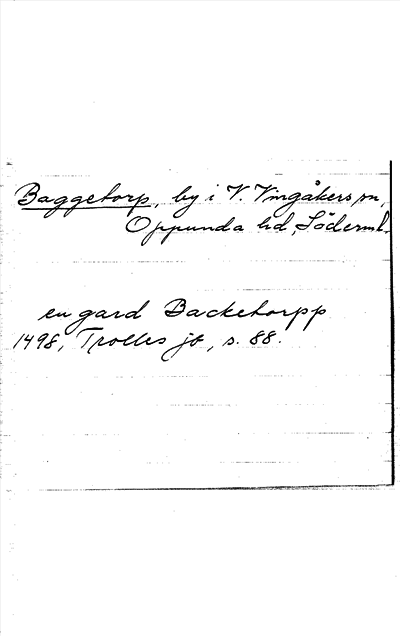 Baggetorp, by i V. Vingåkers sn,
Oppunda hd, Söderml.
en gard Backetorpp
1498, Trolles jb, s. 88.